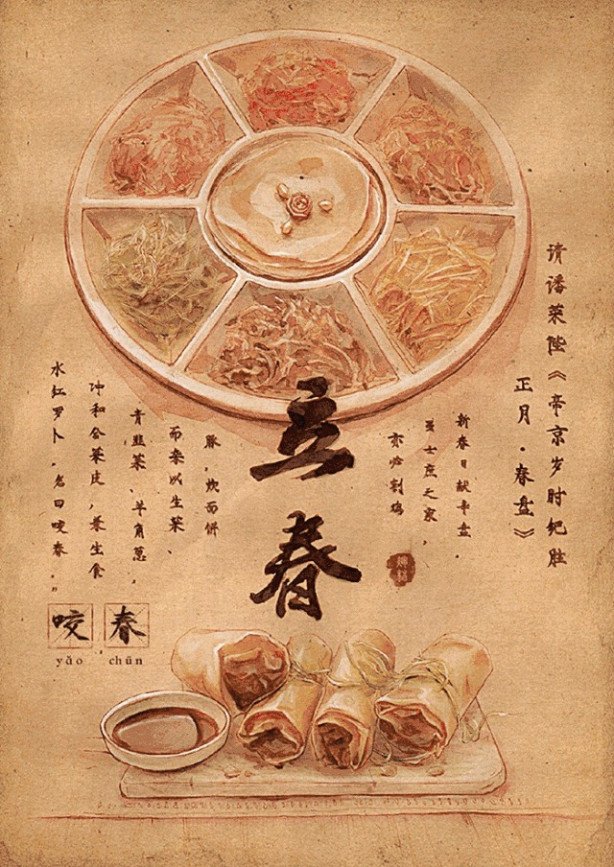 请潘莱陛《帝京岁时纪胜
正月·春盘》
新春日献辛盘
虽士庶之家,
亦必割鸡
豚,炊面饼
而杂以生菜、
青韭菜、羊角葱,
冲和合菜皮,兼生食
水红罗卜,名曰咬春。”
立春
咬春
yǎo chūn